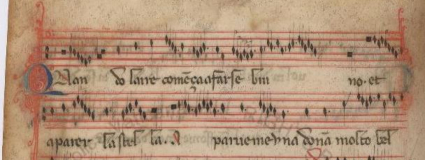 Quan do laire començaa farse bru no. et
aparer la stel la. A paruemeyna dona molto bel